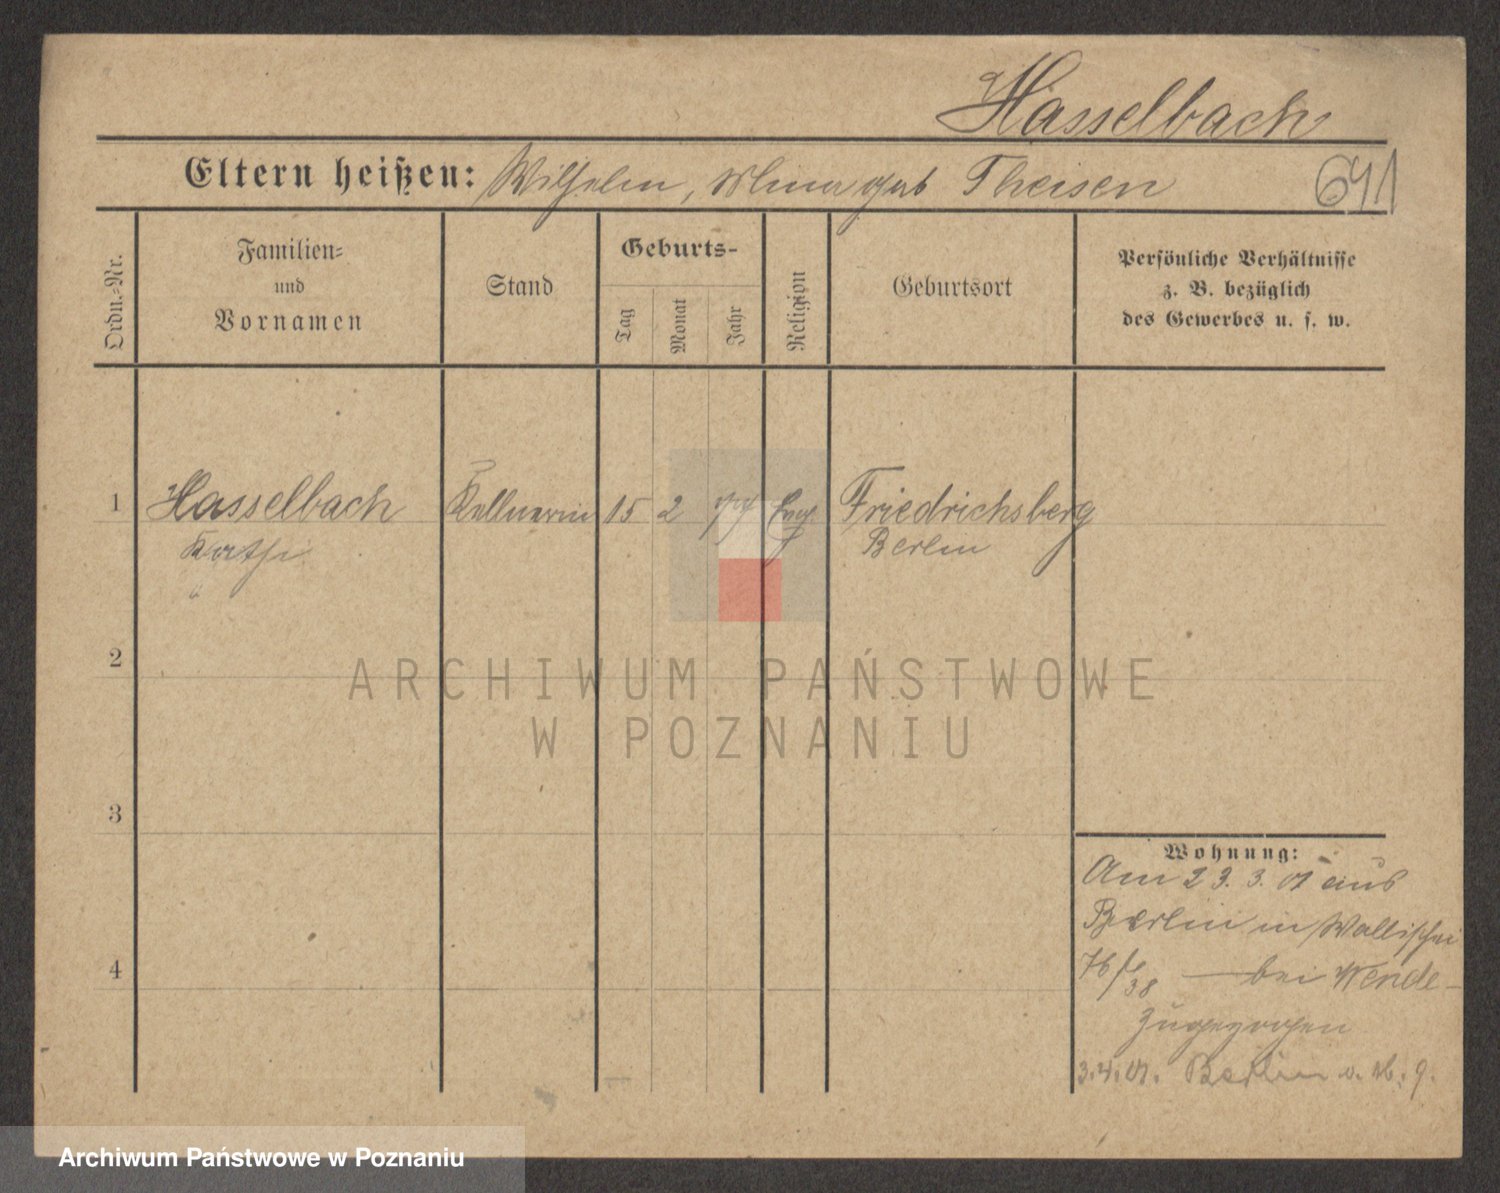 Hasselbach
Eltern heißen: Wilhelm, geb Theisen
641
Ordn.-Nr.
Familien-
und
Vornamen
Stand
Geburts-
Tag
Monat
Jahr
Religion
Geburtsort
Persönliche Verhältnisse
z. B. bezüglich
des Gewerbes u. s. w.
1 Hasselbach Kellnerin 15 2 77 Evg. Friedrichsberg
Käthe Berlin
2
ARCHIWUM PAŃSTWOWE
W POZNANIU
3
4
Wohnung:
Am 23. 3. 01 aus
Berlin in Wallischei
76/38 — bei Wende —
Zugezogen
3.4.01. Berlin
Archiwum Państwowe w Poznaniu